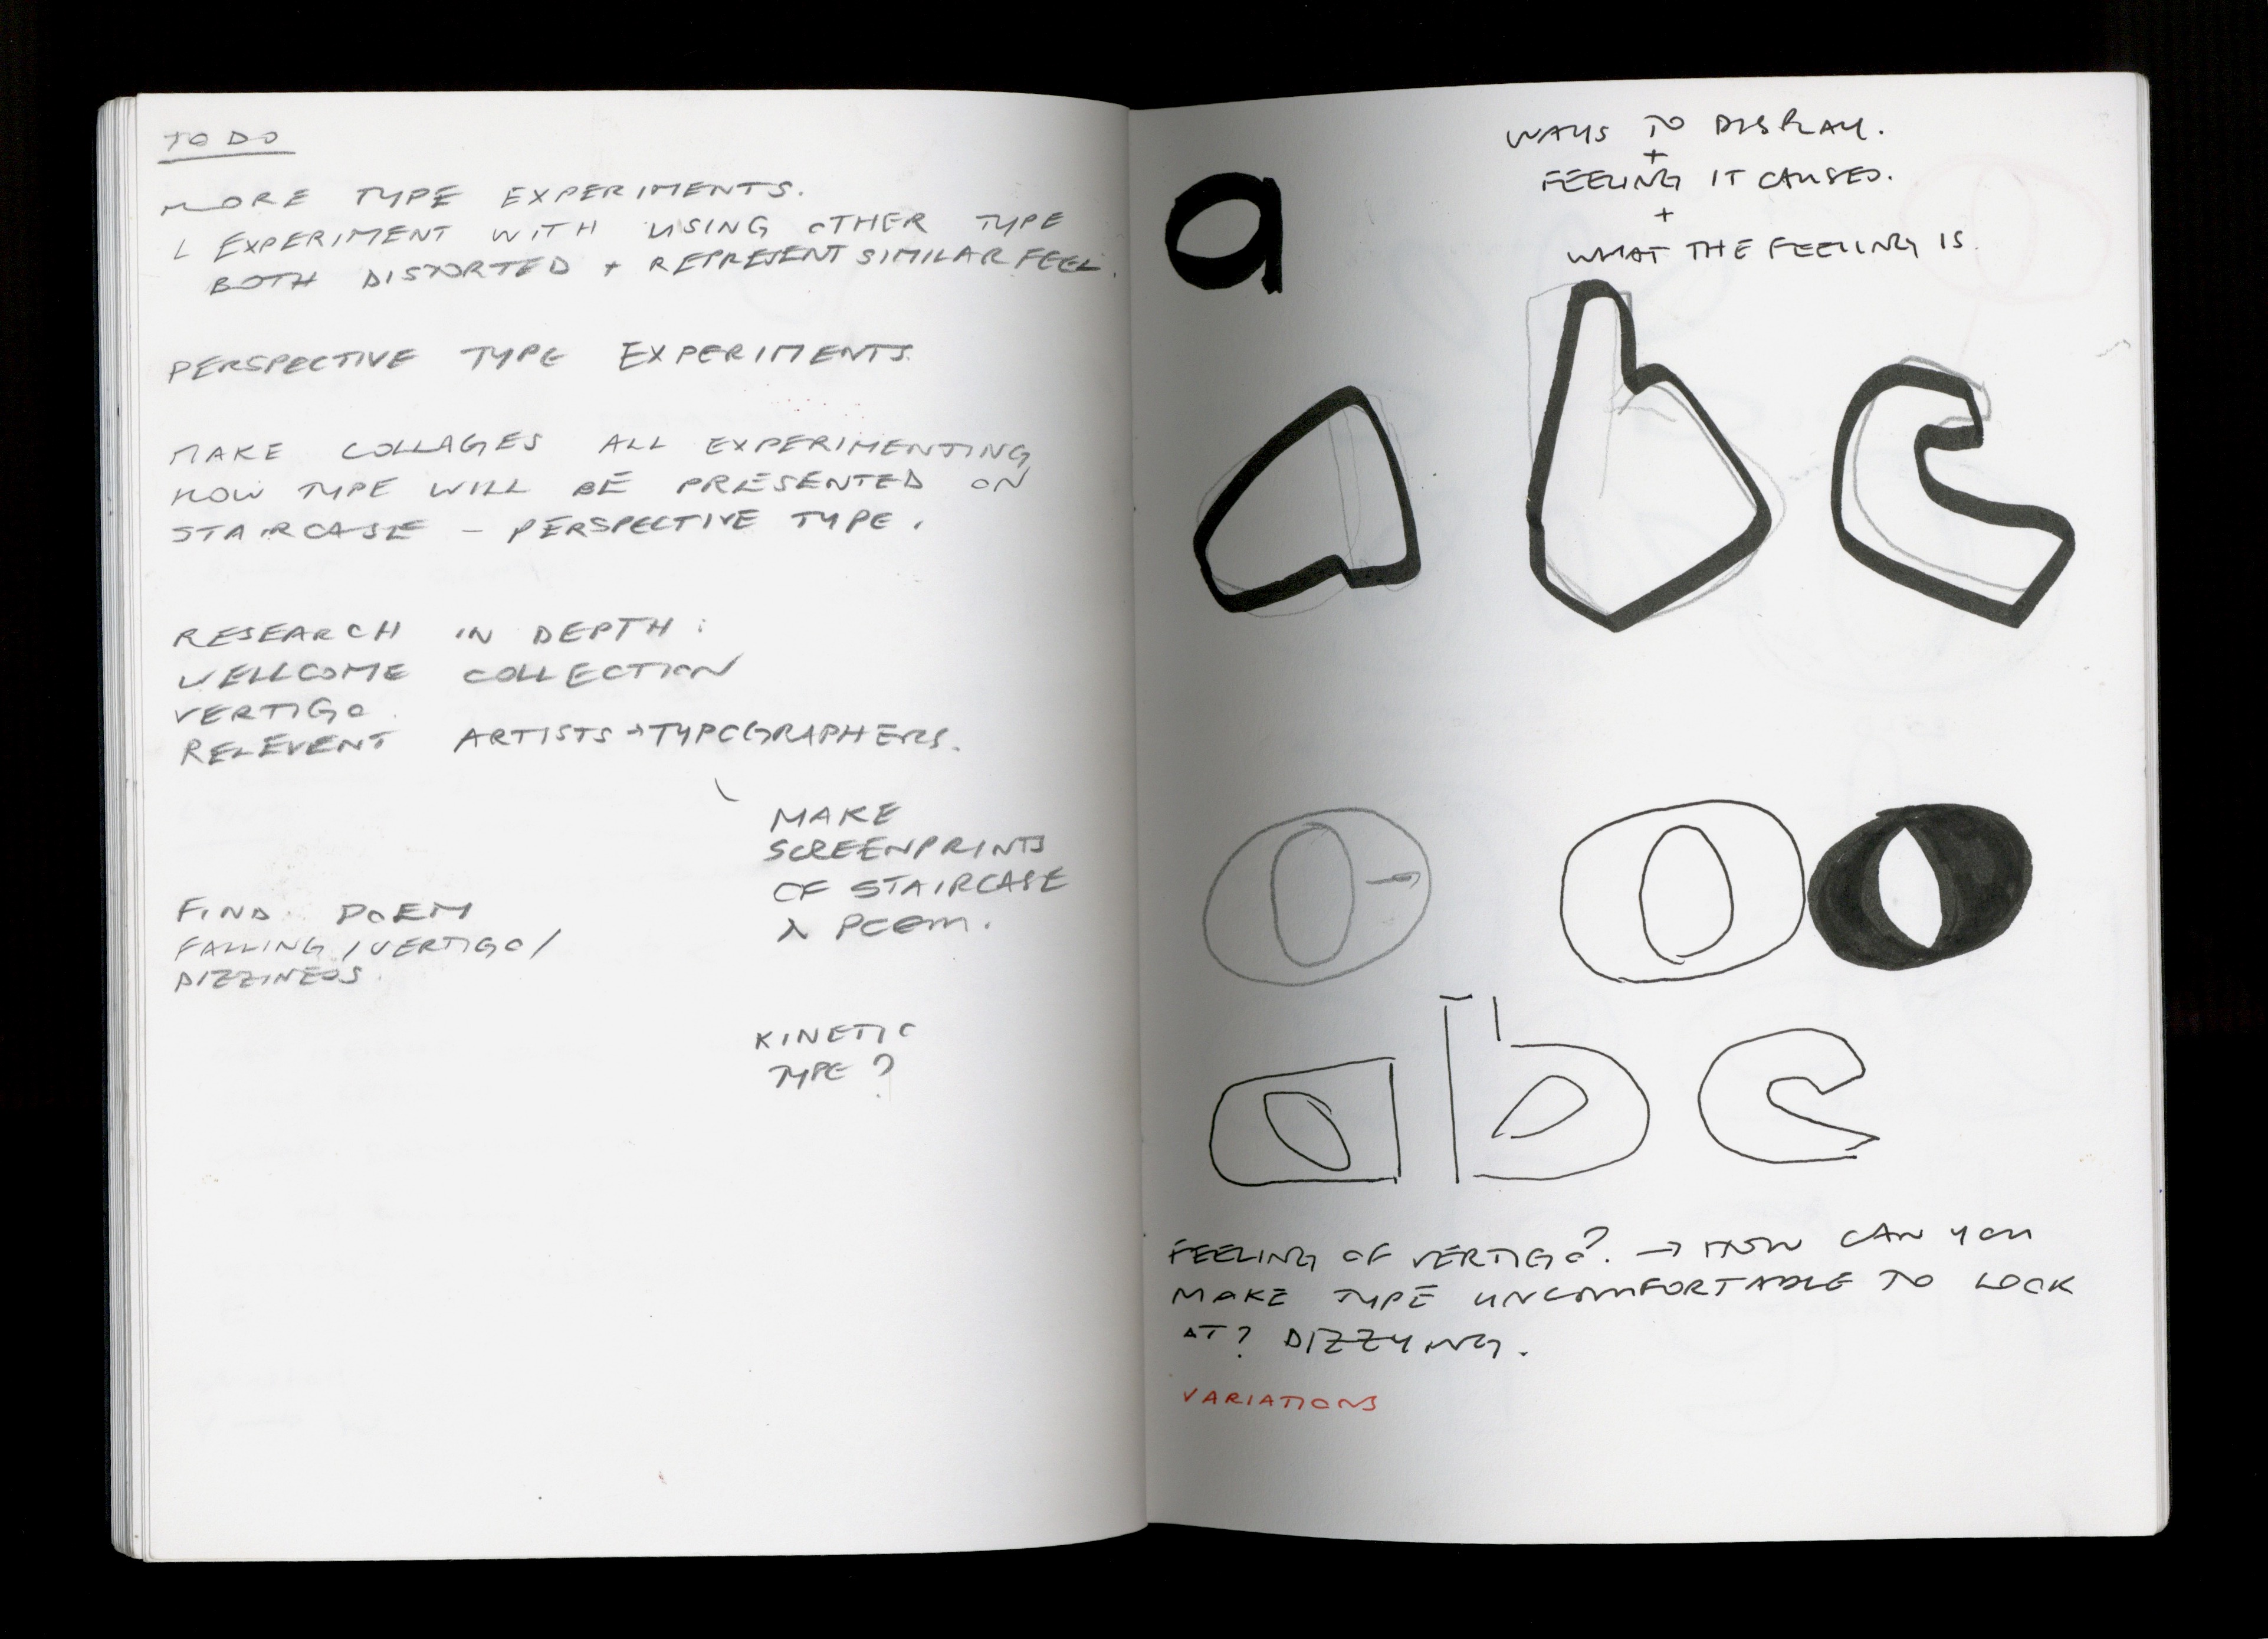 TO DO
MORE TYPE EXPERIMENTS.
L EXPERIMENT WITH USING OTHER TYPE
BOTH DISTORTED + REPRESENT SIMILAR FEEL.
PERSPECTIVE TYPE EXPERIMENTS.
MAKE COLLAGES ALL EXPERIMENTING
HOW TYPE WILL BE PRESENTED ON
STAIRCASE - PERSPECTIVE TYPE.
RESEARCH IN DEPTH:
WELLCOME COLLECTION
VERTIGO.
RELEVENT ARTISTS → TYPOGRAPHERS.
MAKE
SCREENPRINTS
OF STAIRCASE
& POEM.
FIND POEM
FALLING / VERTIGO /
DIZZINESS.
KINETIC
TYPE?
WAYS TO DISPLAY.
+
FEELING IT CAUSES.
+
WHAT THE FEELING IS.
a
a b c
a b c
FEELING OF VERTIGO? → HOW CAN YOU
MAKE TYPE UNCOMFORTABLE TO LOOK
AT? DIZZYING.
VARIATIONS